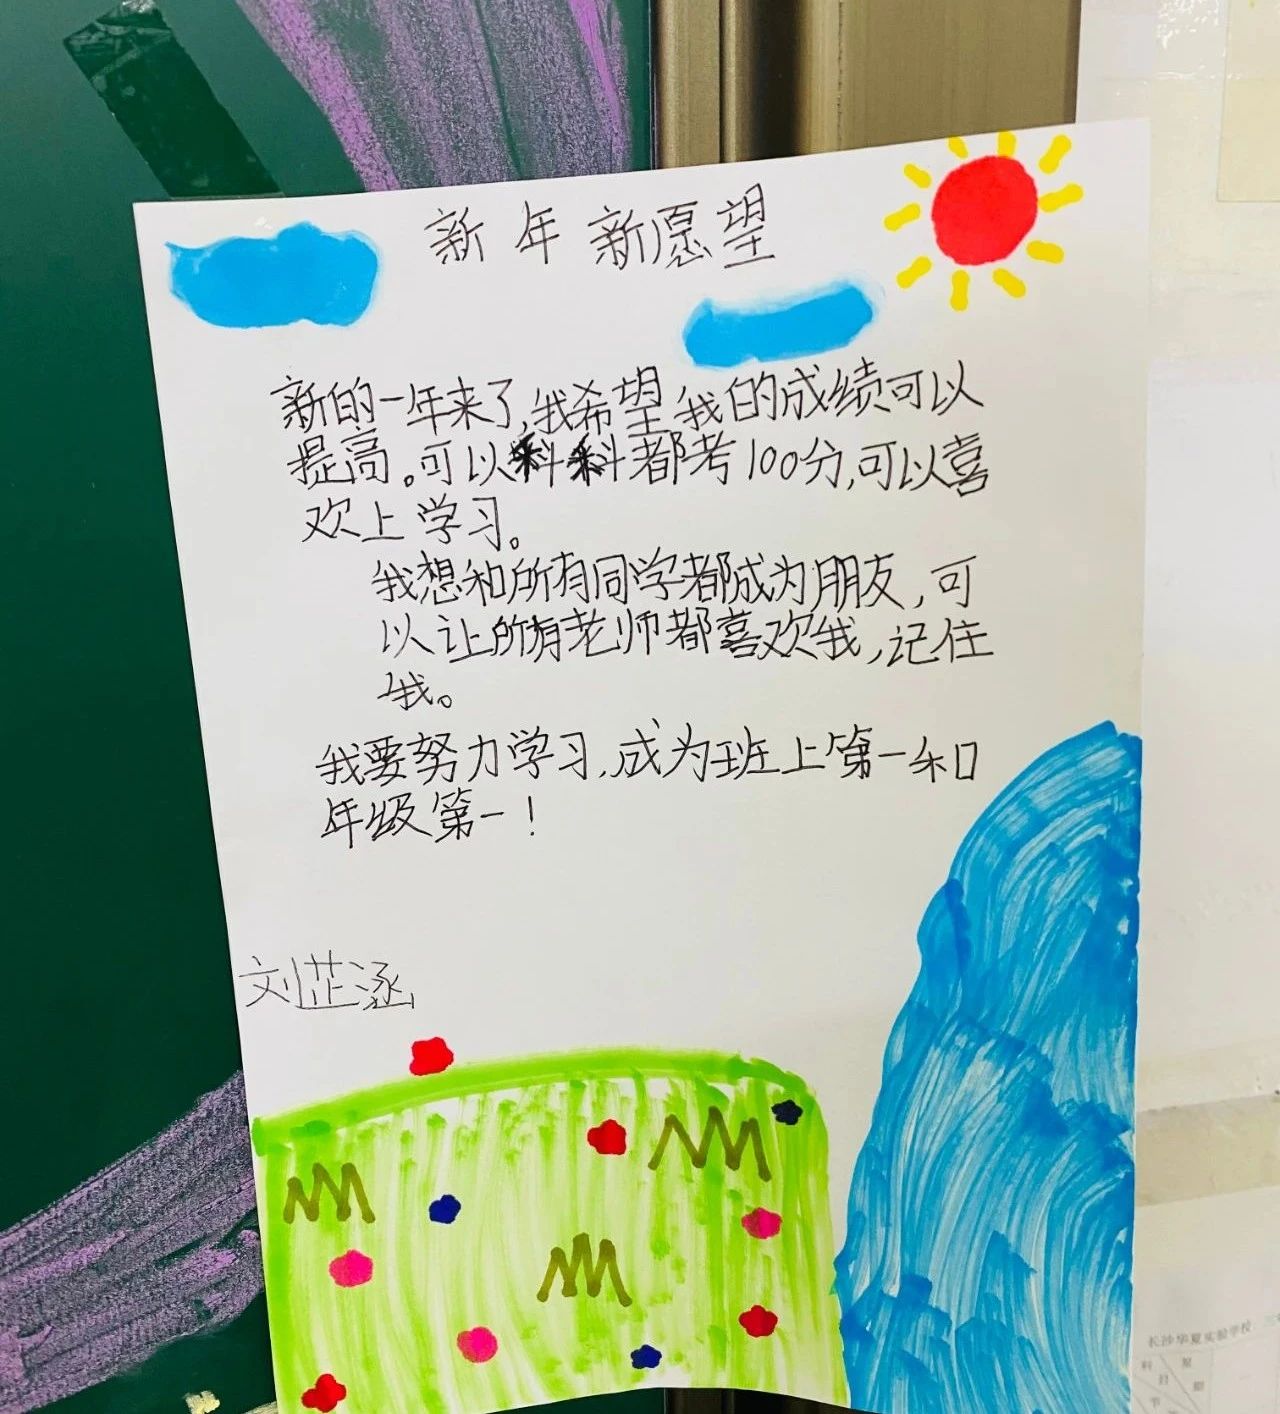 新年新愿望
新的一年来了,我希望我的成绩可以
提高。可以科科都考100分,可以喜
欢上学习。
我想和所有同学都成为朋友,可
以让所有老师都喜欢我,记住
我。
我要努力学习,成为班上第一和
年级第一!
刘芷涵
长沙华夏实验学校
科
目
星
期
节